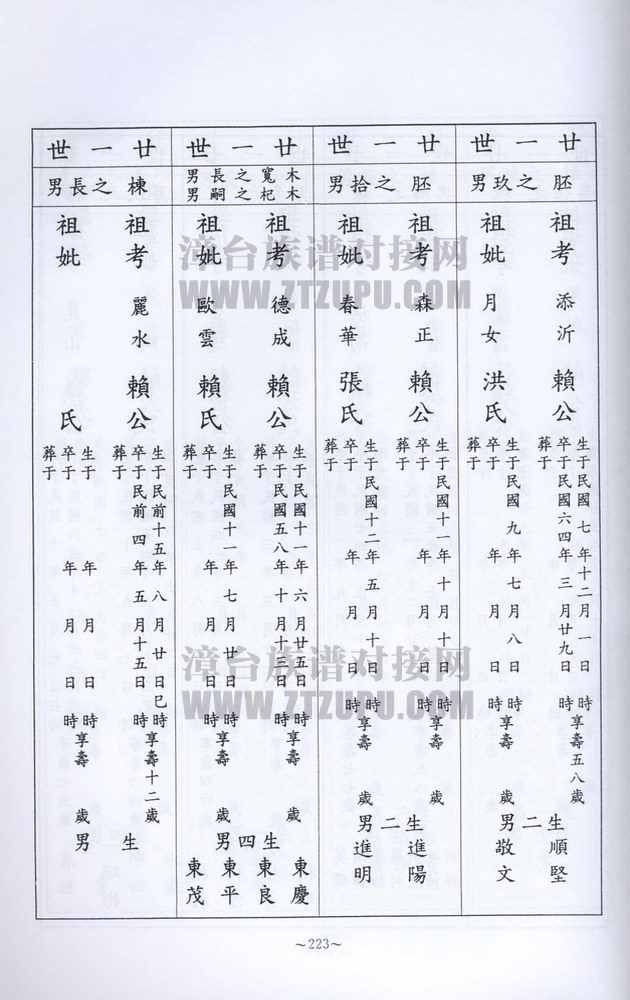 廿一世
胚之玖男
祖考 添沂 賴公
生于民國七年十二月一日時享壽五八歲
卒于民國六四年三月廿九日時
葬于
祖妣 月女 洪氏
生于民國九年七月八日時享壽 歲
卒于 年 月 日 時
葬于
生二男 順堅 敬文
廿一世
胚之拾男
祖考 森正 賴公
生于民國十一年十月十日時享壽 歲
卒于 年 月 日 時
葬于
祖妣 春華 張氏
生于民國十二年五月十日時享壽 歲
卒于 年 月 日 時
葬于
生二男 進陽 進明
廿一世
木寬之長男
木杞之嗣男
祖考 德成 賴公
生于民國十一年六月廿五日時享壽 歲
卒于民國五八年十月十三日時
葬于
祖妣 歐雲 賴氏
生于民國十一年七月廿日時享壽 歲
卒于 年 月 日 時
葬于
生四男 東慶 東良 東平 東茂
廿一世
棟之長男
祖考 麗水 賴公
生于民前十五年八月廿日巳時享壽十二歲
卒于民前四年五月十五日時
葬于
祖妣 氏
生于 年 月 日 時享壽 歲
卒于 年 月 日 時
葬于
生 男
漳台族谱对接网
WWW.ZTZUPU.COM
漳台族谱对接网
WWW.ZTZUPU.COM
~223~